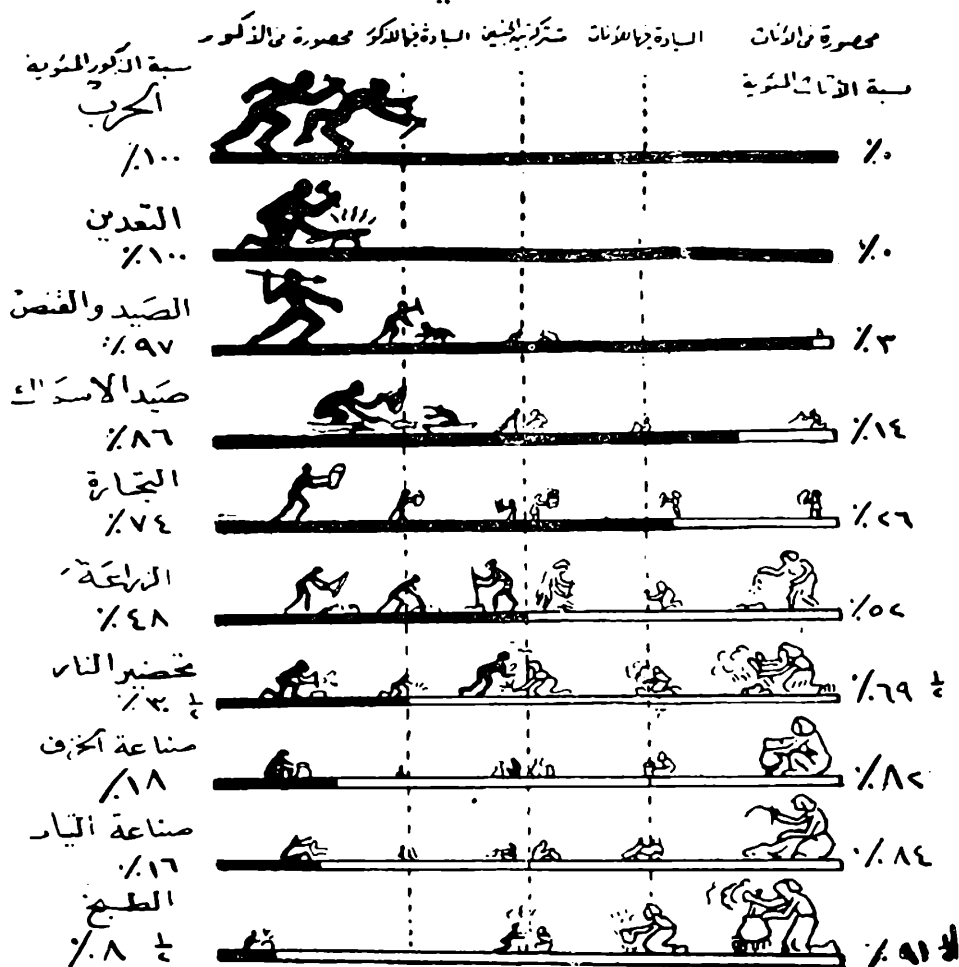 محصورة في الأناث السيادة فيها للأناث مشتركة بين الجنسين السيادة فيها للذكور محصورة في الذكور
نسبة الأناث المئوية نسبة الذكور المئوية
الحرب
٪١٠٠ ٪٠
التعدين
٪١٠٠ ٪٠
الصيد والقنص
٪٩٧ ٪٣
صيد الاسماك
٪٨٦ ٪١٤
التجارة
٪٧٤ ٪٢٦
الزراعة
٪٤٨ ٪٥٢
تحضير النار
٪٣٠ ½ ٪٦٩ ½
صناعة الخزف
٪١٨ ٪٨٢
صناعة
٪١٦ ٪٨٤
الطبخ
٪٨ ½ ٪٩١ ½